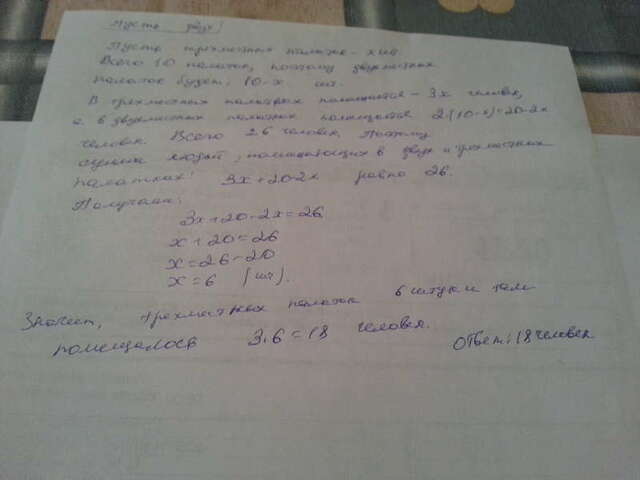 Пусть двух!
Пусть трехместных палаток - x шт
Всего 10 палаток, поэтому двухместных
палаток будет: 10-x шт.
В трехместных палатках помещается - 3x человек,
а в двухместных палатках помещается 2(10-x)=20-2x
человек. Всего 26 человек. Поэтому
сумма людей, помещающихся в двух и трехместных
палатках: 3x+20-2x равно 26.
Получаем:
3x+20-2x=26
x+20=26
x=26-20
x=6 (шт).
Значит, трехместных палаток 6 штук и там
помещалось 3.6=18 человек.
Ответ: 18 человек